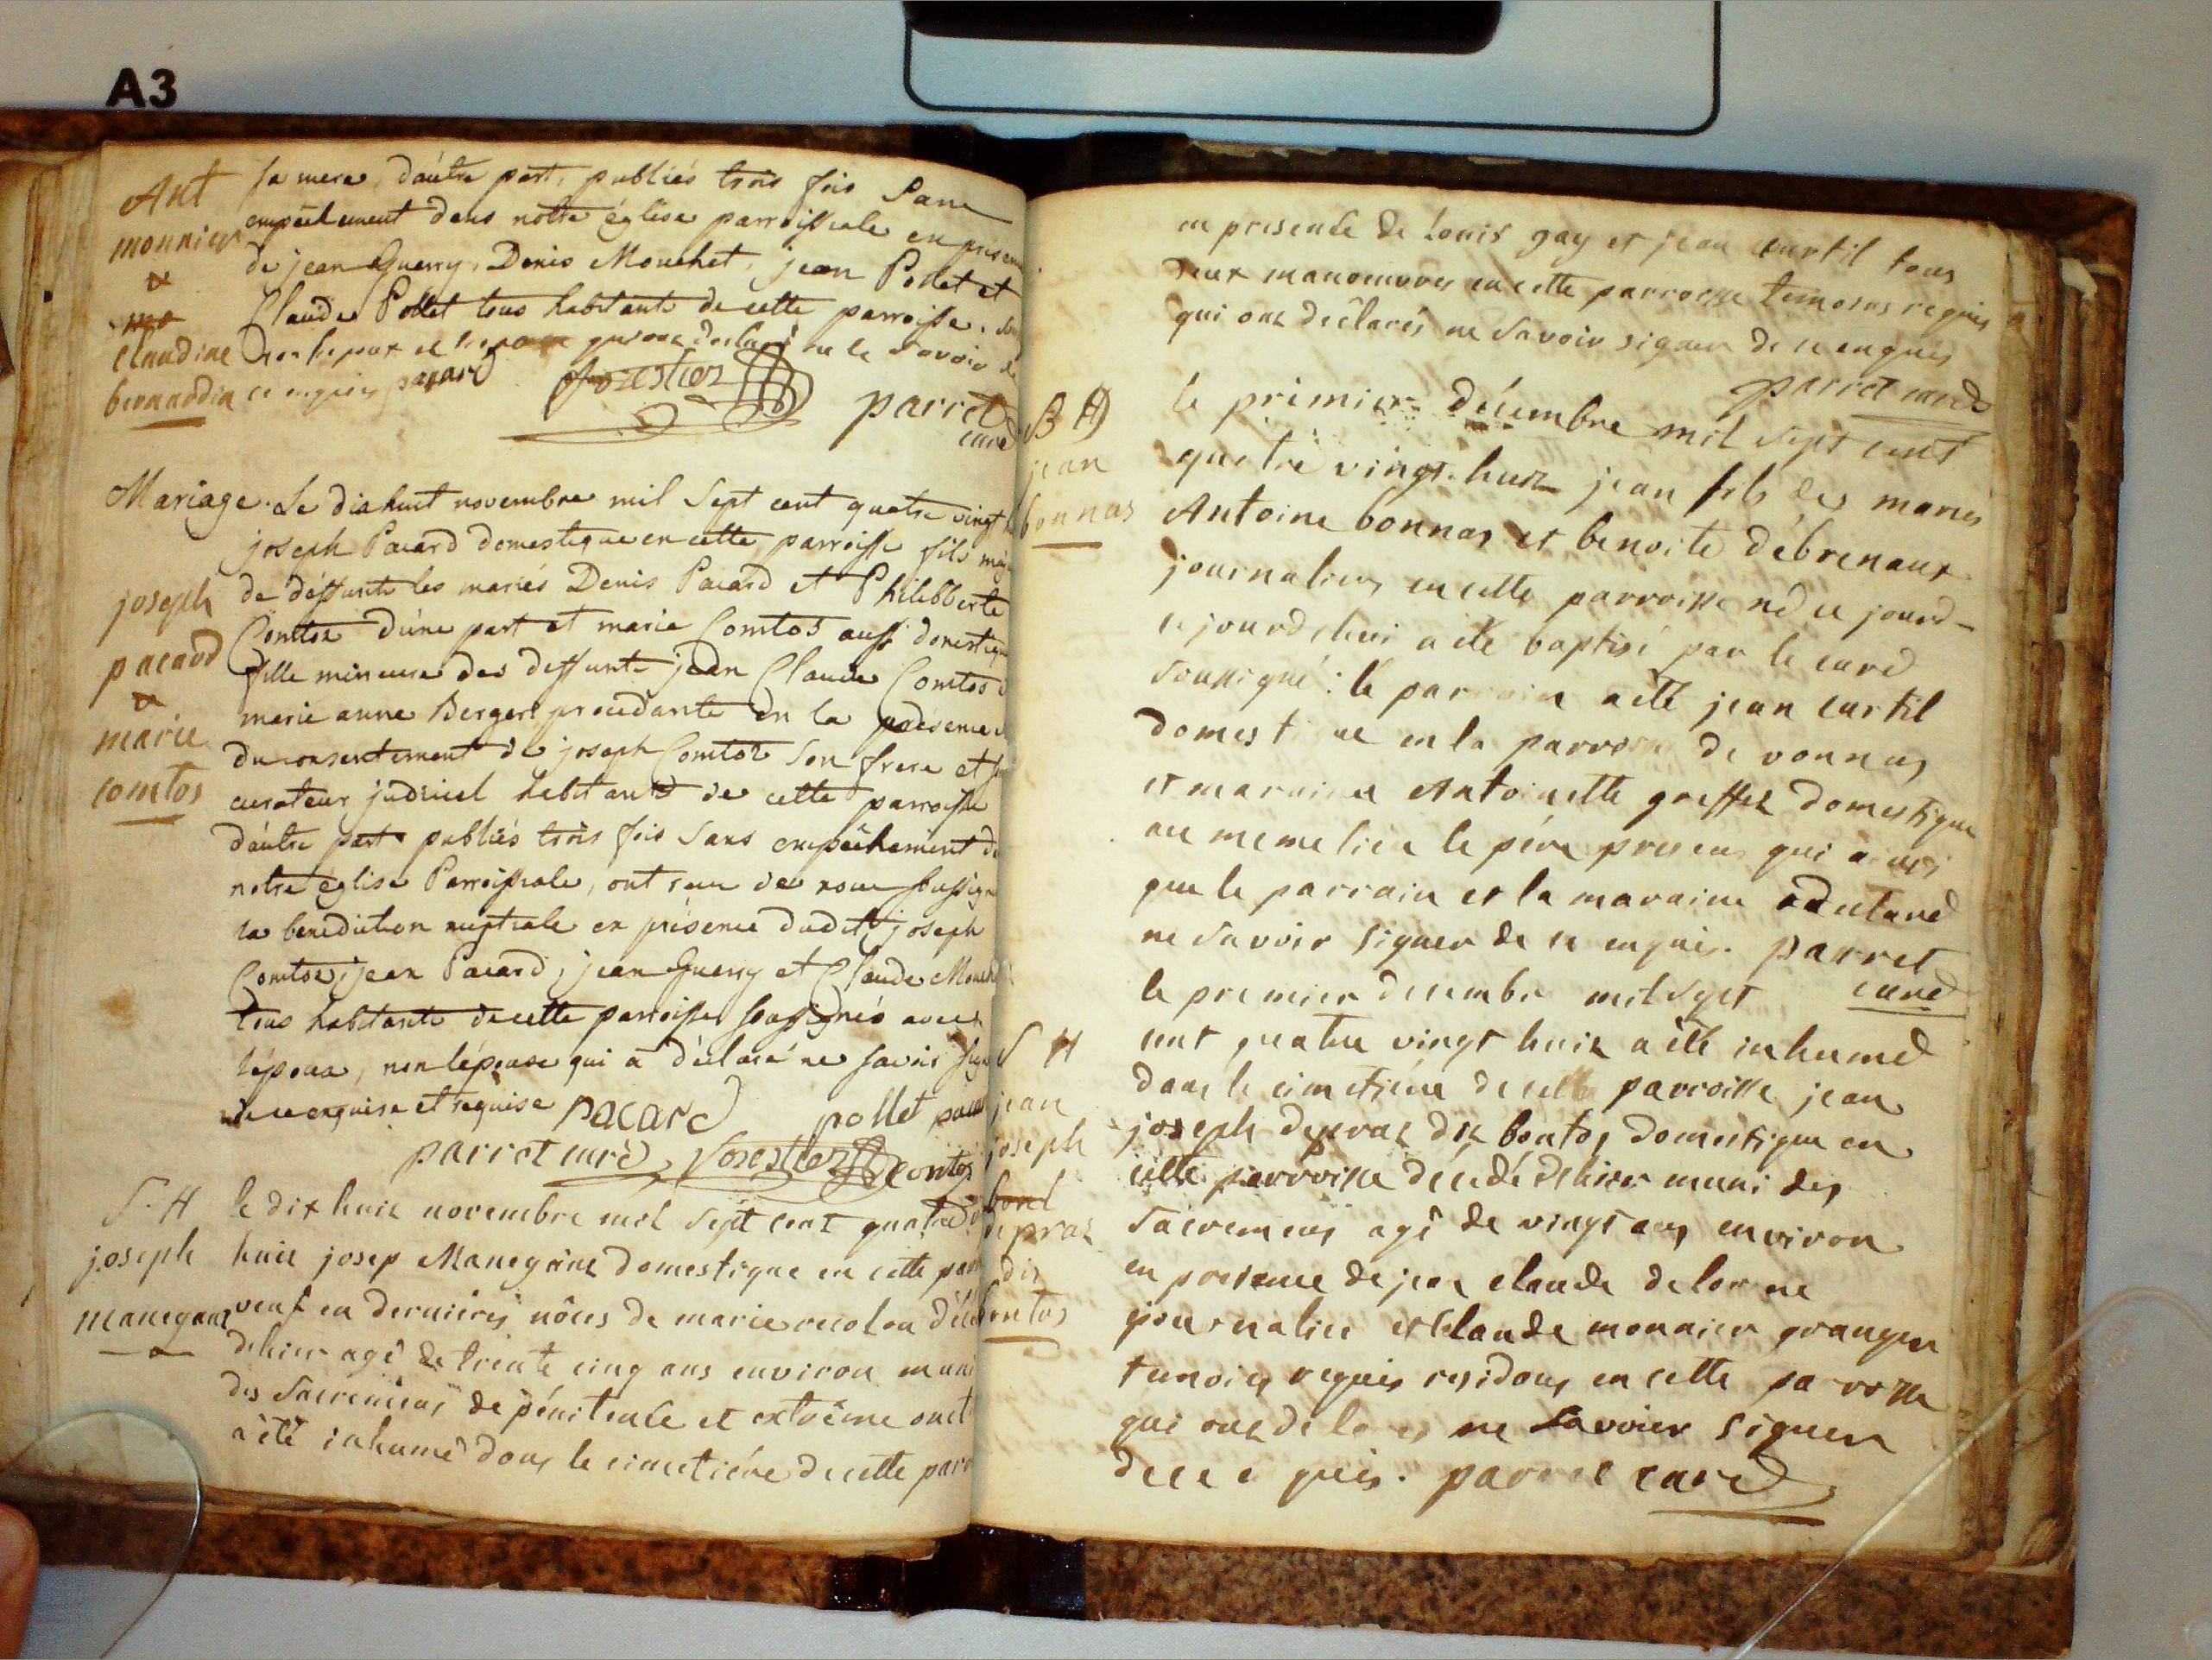 A3
Ant
monnier
&
claudine
bernardin
sa mere, d'autre part, publiés trois fois Sans
empêchement dans notre église parroissiale en presence
de jean Guerry, Denis Mouchet, jean Pollet et
Claude Pollet tous habitants de cette parroisse.
ce enquis pacard
forestier
parret
curé
Mariage. Le dix huit novembre mil Sept cent quatre vingt
joseph
pacard
&
marie
comtos
joseph Pacard domestique en cette parroisse fils
de deffunts les mariés Denis Pacard et Philibberte
Comtos d'une part et marie Comtos aussi domestique
fille mineure des deffunts jean Claude Comtos
marie anne Berger procedante en la présence
du consentement de joseph Comtos Son frere et
curateur judiciel habitants de cette parroisse
d'autre part publiés trois fois Sans empêchement
notre église Parroissiale, ont reçu de nous soussigné
la benediction nuptiale en présence dudit joseph
Comtos, jean Pacard, jean Guerry et Claude Mouchet
tous habitants de cette parroisse soussignés avec
l'époux, non l'épouse qui a déclaré ne savoir
de ce enquise et requise pacard pollet
parret curé forestier comtos
S. H
joseph
manegant
le dix huit novembre mil Sept cent quatre
huit josep Manegant domestique en cette
veuf en dernieres nôces de marie
d'hier agé de trente cinq ans environ muni
des Sacremens de pénitence et extrême
a été inhumé dans le cimetiére de cette
en presence de Louis gay et jean curtil tous
deux manoeuvres en cette parroisse temoins requis
qui ont déclarés ne Savoir signer de ce enquis
parret curé
B H
jean
bonnas
le premier décembre mil Sept cent
quatre vingt huit jean fils des mariés
Antoine bonnas et benoite débrenaux
journaliers en cette parroisse né ce jourd-
ce jourd'hui a été baptisé par le curé
Soussigné : le parrain a été jean curtil
domestique en la parroisse de vonnas
et marraine Antoinette greffet domestique
au meme lieu le pére present qui ainsi
que le parrain et la maraine
ne Savoir signer de ce enquis. parret
curé
S H
jean
joseph
depraz
dit
bontos
le premier decembre mil Sept
cent quatre vingt huit a été inhumé
dans le cimetiére de cette parroisse jean
joseph depraz dit bontos domestique en
cette parroisse décédé d'hier muni des
Sacremens agé de vingt ans environ
en presence de jean claude delorme
journalier et Claude monnier granger
temoins requis residans en cette parroisse
qui ont de ne Savoir signer
de ce enquis. parret curé